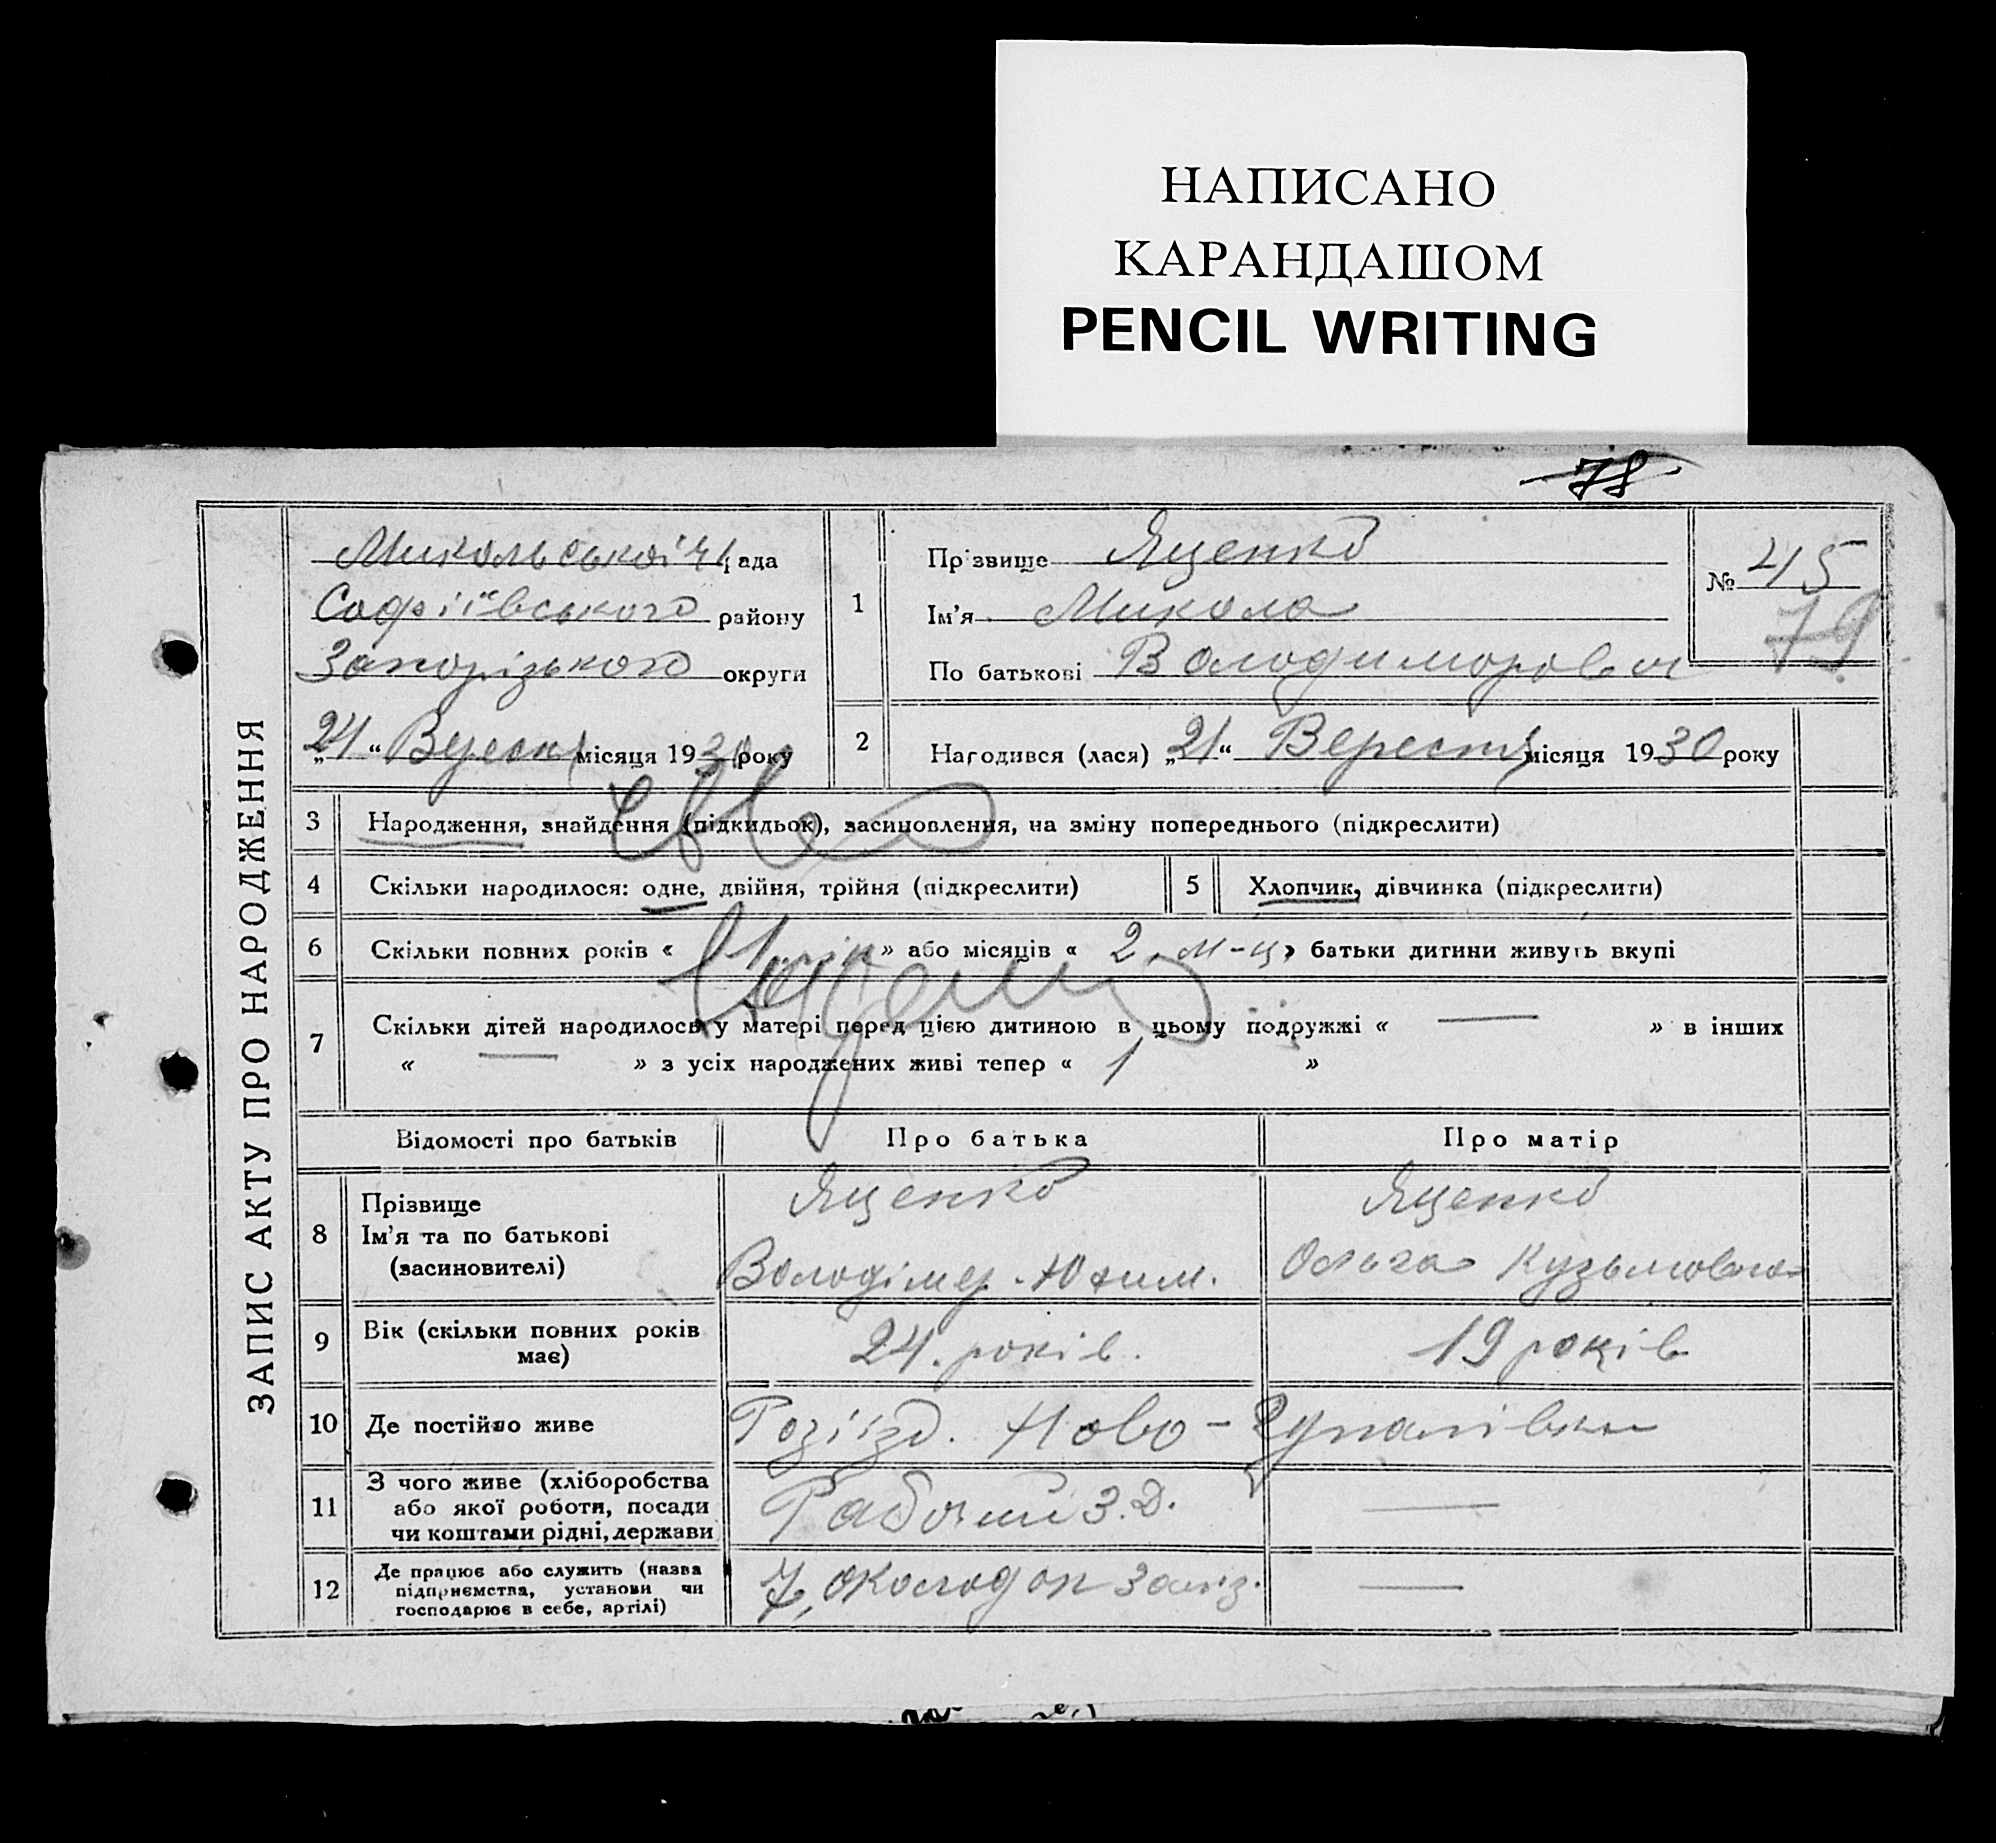 НАПИСАНО
КАРАНДАШОМ
PENCIL WRITING
78
ЗАПИС АКТУ ПРО НАРОДЖЕННЯ
Микольської рада
Софіївського району
Запорізького округи
„24“ Вересня місяця 1930 року
1
Прізвище Яценко
Ім'я Микола
По батькові Володиморович
№ 45
79
2
Народився (лася) „21“ Вересня місяця 1930 року
3 Народження, знайдення (підкидьок), засиновлення, на зміну попереднього (підкреслити)
4 Скільки народилося: одне, двійня, трійня (підкреслити) 5 Хлопчик, дівчинка (підкреслити)
6 Скільки повних років « 1 рік » або місяців « 2. м-ц » батьки дитини живуть вкупі
7 Скільки дітей народилось у матері перед цією дитиною в цьому подружжі « — » в інших
« — » з усіх народжених живі тепер « 1 »
Відомості про батьків Про батька Про матір
8 Прізвище Яценко Яценко
Ім'я та по батькові Володімер Юхим. Ольга Кузьмовна
(засиновителі)
9 Вік (скільки повних років має) 24. років. 19 років
10 Де постійно живе Розїізд. Ново-Гупалівка
11 З чого живе (хліборобства або якої роботи, посади чи коштами рідні, держави Рабочий З.Д. —
12 Де працює або служить (назва підприємства, установи чи господарює в себе, артілі) 7, околодок заліз. —